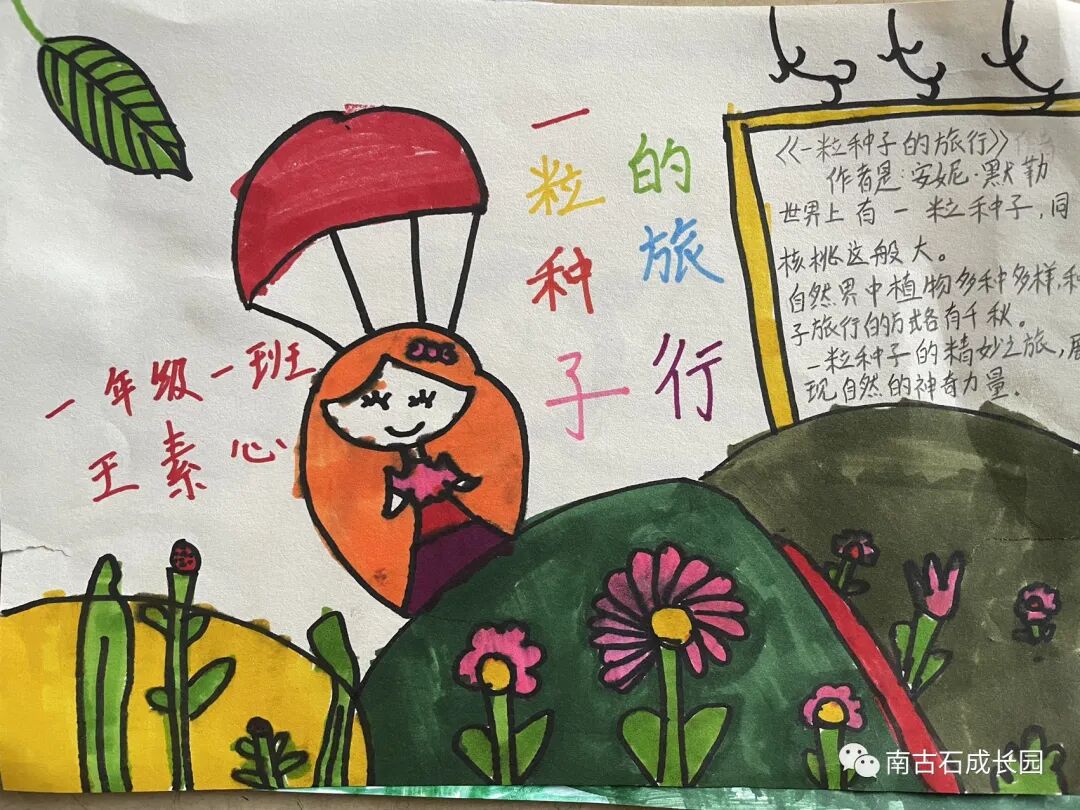 一粒种子
的旅行
一年级一班
王素心
《一粒种子的旅行》作者
作者是:安妮·默勒
世界上有一粒种子,同
核桃这般大。
自然界中植物多种多样,种
子旅行的方式各有千秋。
一粒种子的精妙之旅,展
现自然的神奇力量.
南古石成长园